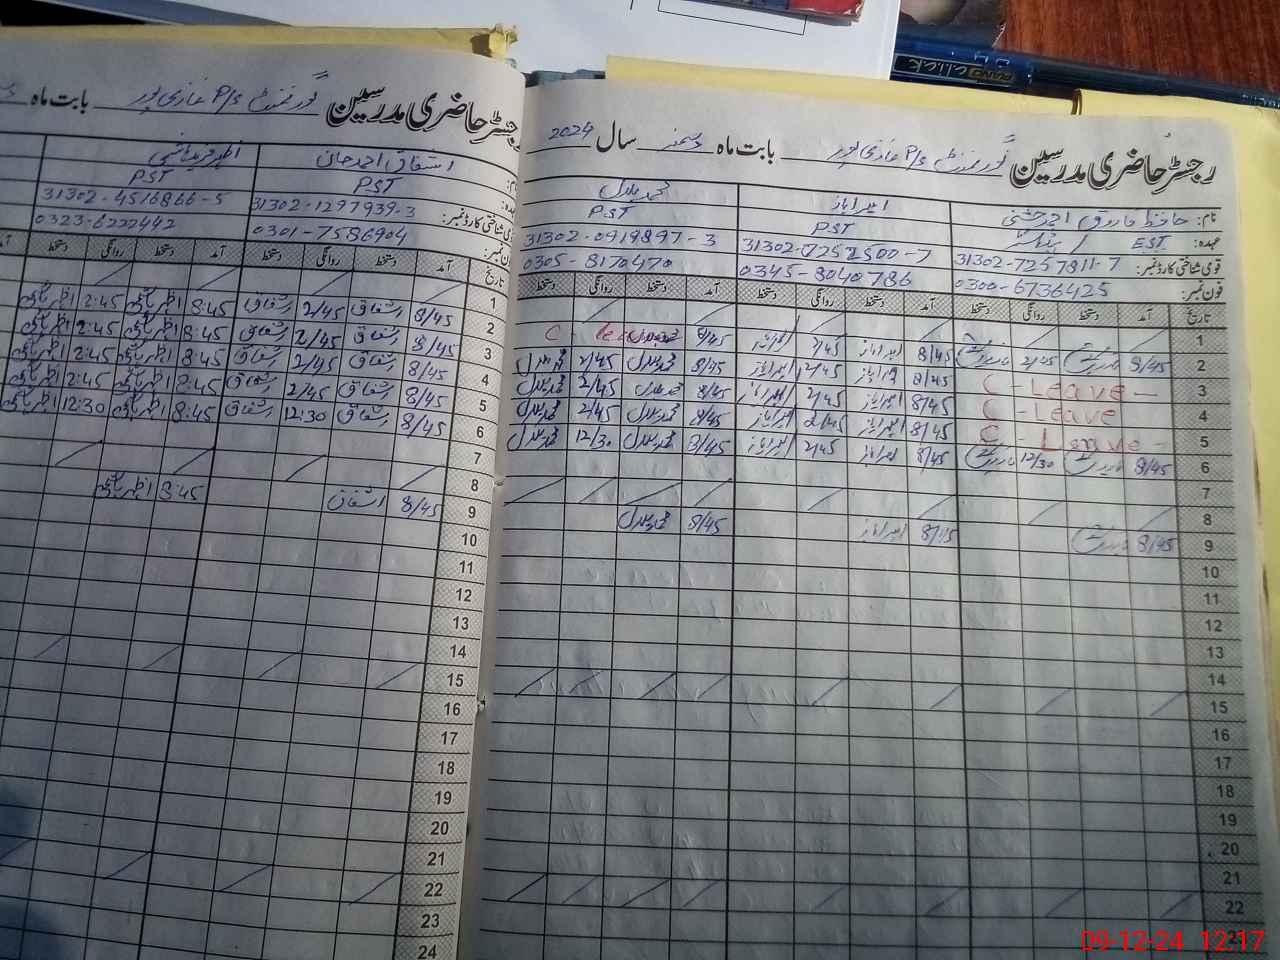 رجسٹر حاضری مدرسین گورنمنٹ P/S غازی پور بابت ماہ دسمبر سال 2024
نام: حافظ فاروق احمد چشتی امیر ایاز محمد بلال
عہدہ: EST / PST PST
قومی شناختی کارڈ نمبر: 31302-7257811-7 31302-7252500-7 31302-0919897-3
فون نمبر: 0300-6736425 0345-8040786 0305-8170470
تاریخ آمد دستخط روانگی دستخط آمد دستخط روانگی دستخط آمد دستخط روانگی دستخط
1
2 8/45 2/45 8/45 امیر ایاز 2/45 8/45 C - Leave
3 C - Leave 8/45 امیر ایاز 2/45 8/45 محمد بلال 2/45 محمد بلال
4 C - Leave 8/45 امیر ایاز 2/45 8/45 محمد بلال 2/45 محمد بلال
5 C - Leave 8/45 امیر ایاز 2/45 8/45 محمد بلال 2/45 محمد بلال
6 8/45 12/30 8/45 امیر ایاز 2/45 8/45 محمد بلال 12/30 محمد بلال
7
8
9 8/45 8/45 امیر ایاز 8/45 محمد بلال
10
11
12
13
14
15
16
17
18
19
20
21
22
رجسٹر حاضری مدرسین گورنمنٹ P/S غازی پور بابت ماہ
اشفاق احمد خان اظہر فرید ہاشمی
PST PST
31302-1297939-3 31302-4516866-5
0301-7586904 0323-6222442
تاریخ آمد دستخط روانگی دستخط آمد دستخط روانگی دستخط
1
2 8/45 اشفاق 2/45 اشفاق 8:45 2:45
3 8/45 اشفاق 2/45 اشفاق 8:45 2:45
4 8/45 اشفاق 2/45 اشفاق 8:45 2:45
5 8/45 اشفاق 2/45 اشفاق 8:45 2:45
6 8/45 اشفاق 12:30 اشفاق 8:45 12:30
7
8
9 8/45 اشفاق 8:45
10
11
12
13
14
15
16
17
18
19
20
21
22
23
24
PIANO click
09-12-24 12:17